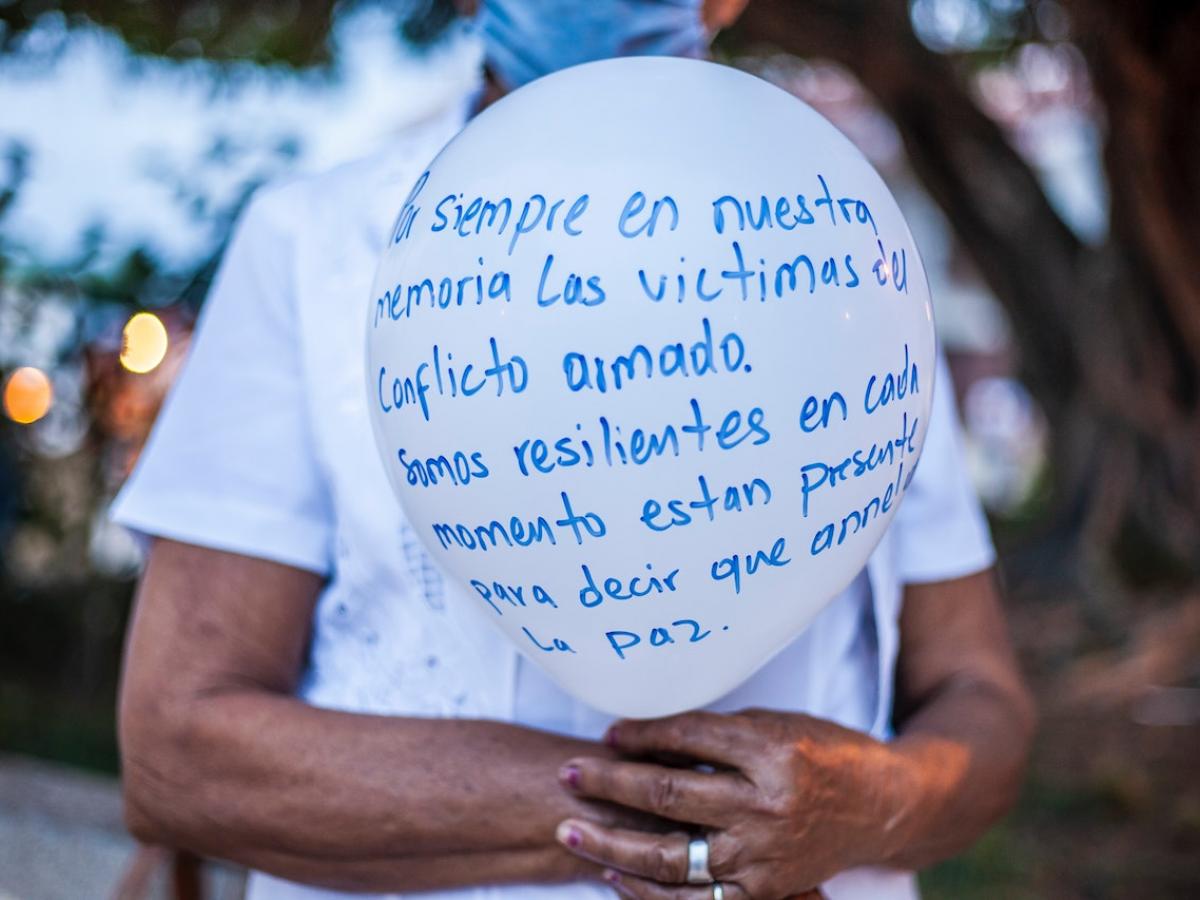 Por siempre en nuestra
memoria las victimas del
Conflicto armado.
somos resilientes en cada
momento estan presente
para decir que
la paz.